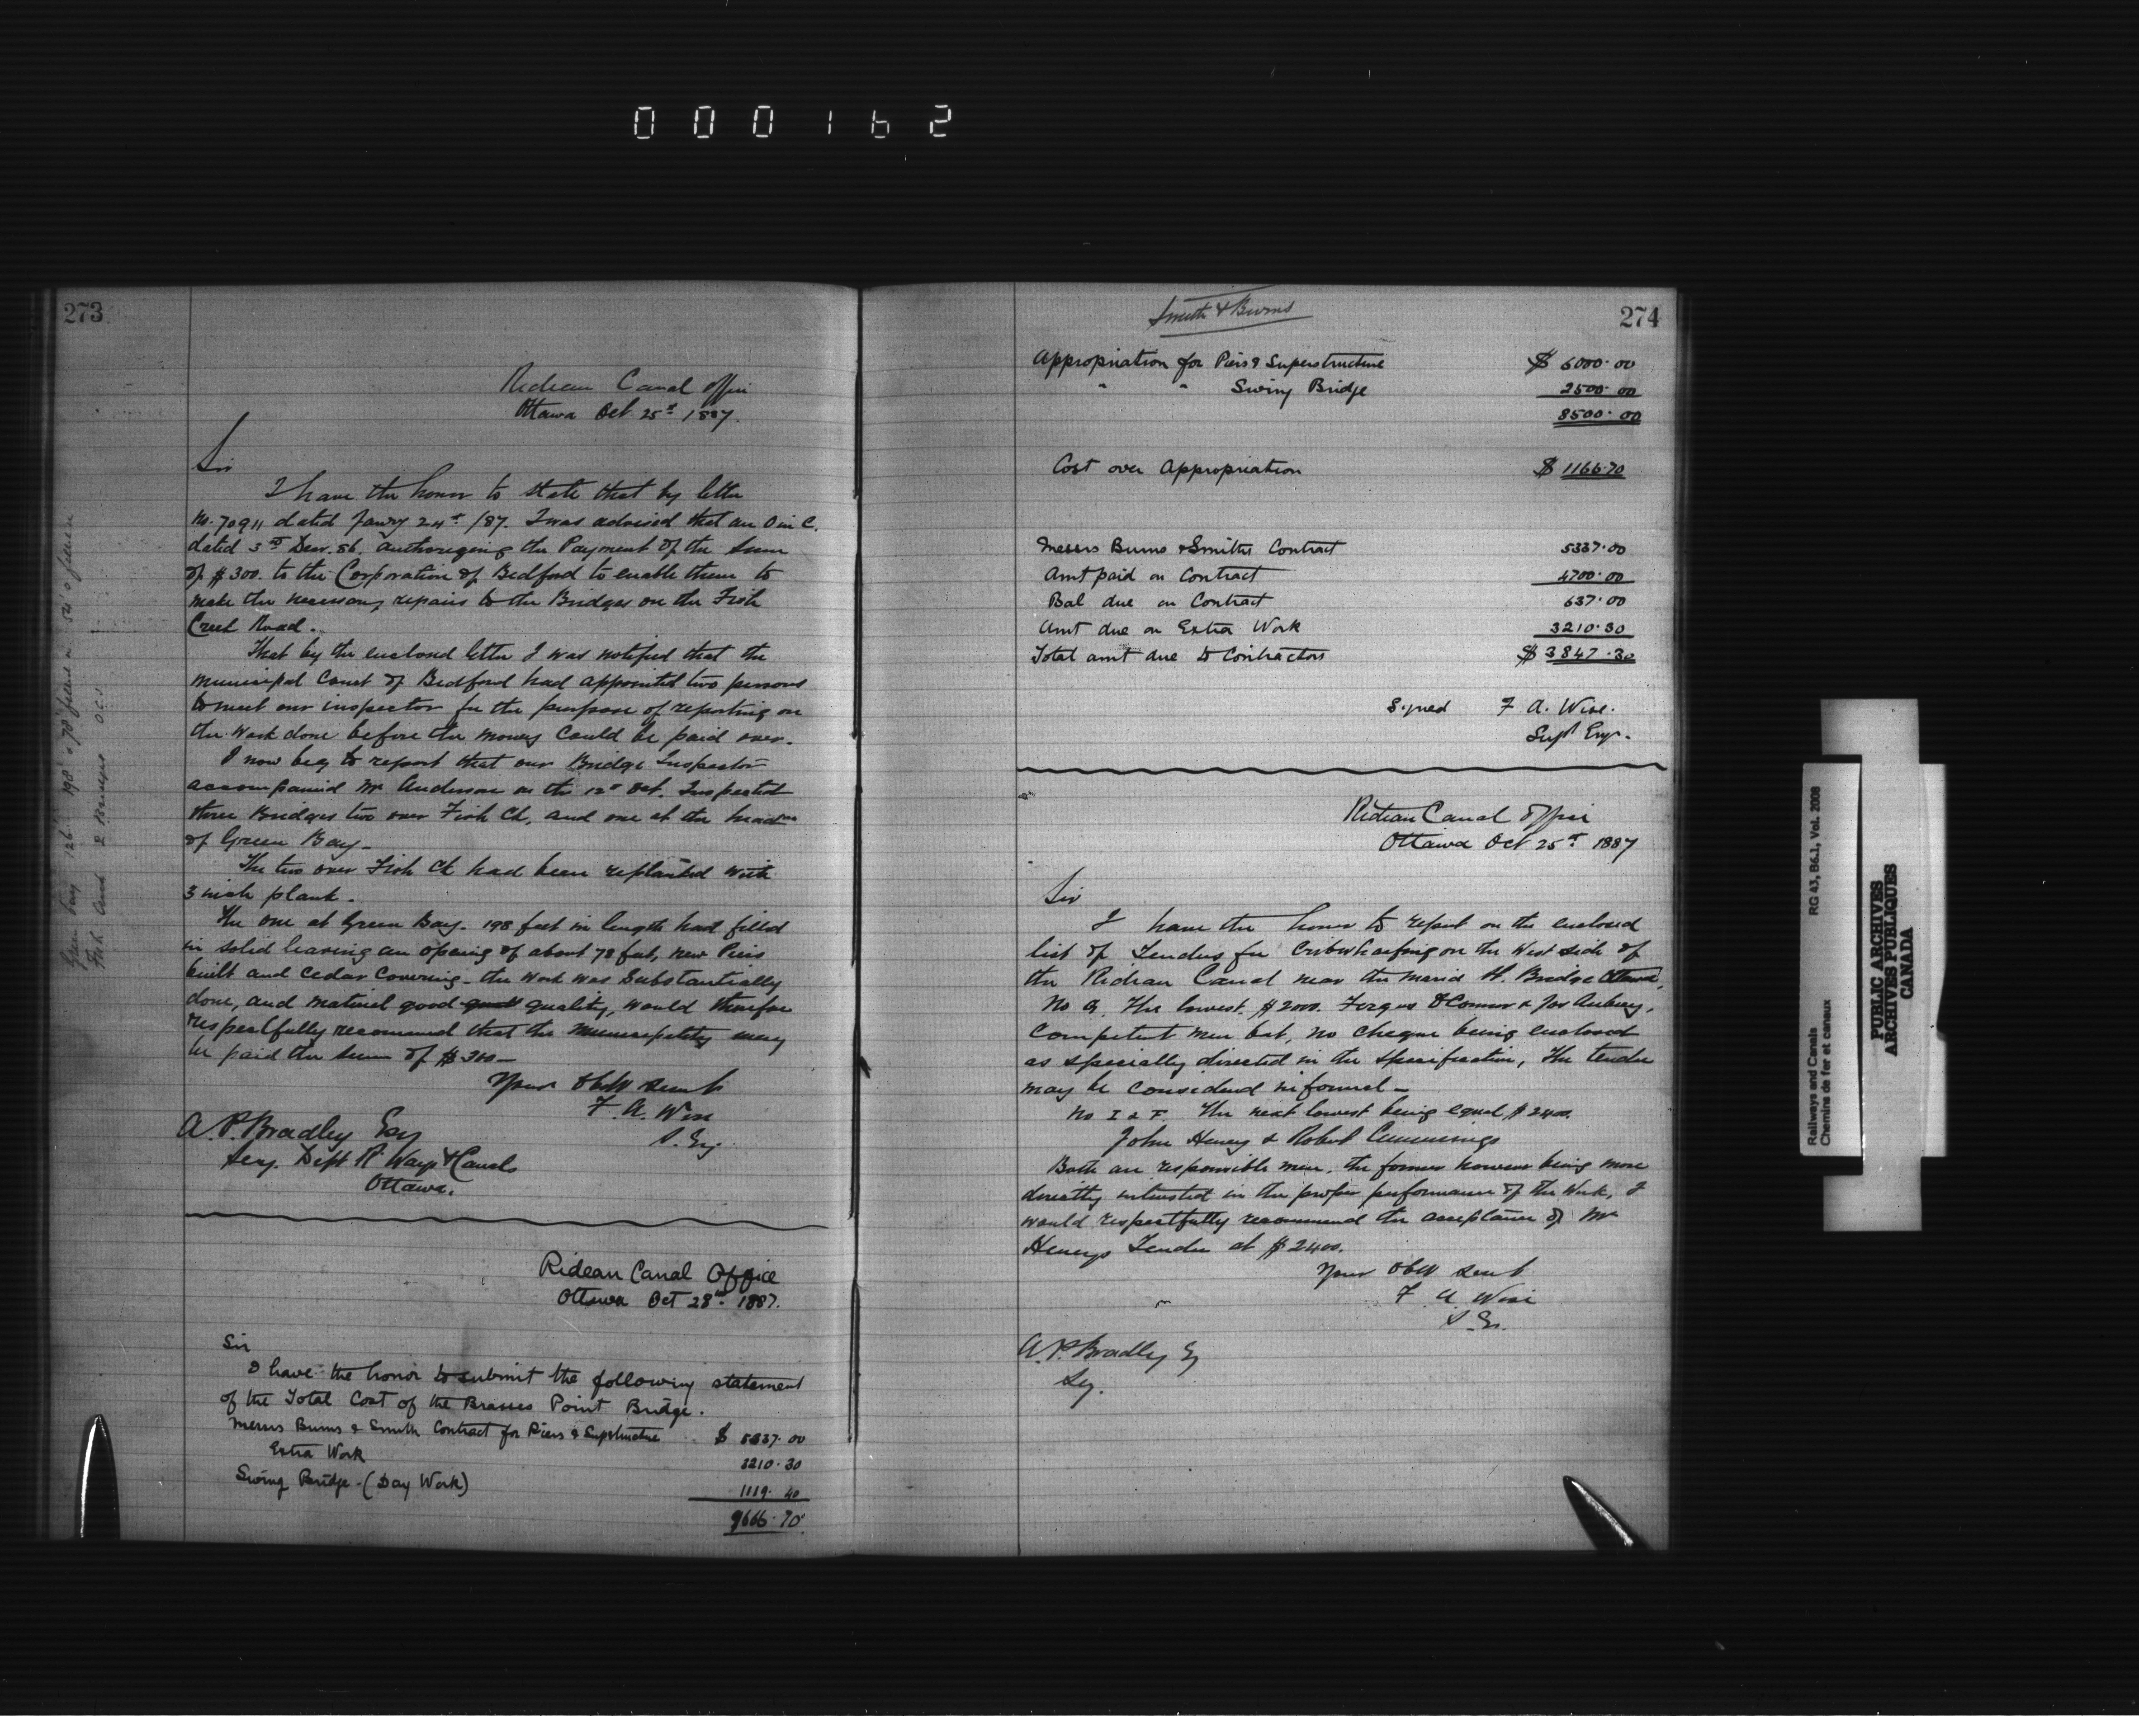 000162
273
Rideau Canal Office
Ottawa Oct 25th 1887.
Sir
I have the honor to state that by letter
No. 70911 dated Janry 24th /87. I was advised that an O in C.
dated 3rd Decr. 86. authorizing the Payment of the sum
of $300. to the Corporation of Bedford to enable them to
make the necessary repairs to the Bridges on the Fish
Creek Road.
That by the enclosed letter I was notified that the
Municipal Council of Bedford had appointed two persons
to meet our inspector for the purpose of reporting on
the work done before the money could be paid over.
I now beg to report that our Bridge Inspector
accompanied Mr Anderson on the 12th Oct. Inspected
three Bridges two over Fish Ck, and one at the head
of Green Bay_
The two over Fish Ck had been replanked with
3 inch plank.
The one at Green Bay. 198 feet in length had filled
in solid leaving an opening of about 78 feet, new Piers
built and Cedar Covering_ the work was Substantially
done, and material good quality, would therefore
respectfully recommend that the Municipality may
be paid the sum of $300_
Your Obdt Servt
F. A. Wise
S. Eng
A. P. Bradley Esq
Secy. Dept R. Ways & Canals
Ottawa.
Rideau Canal Office
Ottawa Oct 28th 1887.
Sir
I have the honor to submit the following statement
of the Total Cost of the Brasses Point Bridge.
Messrs Burns & Smith Contract for Piers & Supstructure $ 5337.00
Extra Work 3210.30
Swing Bridge-(Day Work) 1119.40
9666.70
Smith & Burns
274
Appropriation for Piers & Superstructure $ 6000.00
" " Swing Bridge 2500.00
8500.00
Cost over Appropriation $ 1166.70
Messrs Burns & Smiths Contract 5337.00
Amt paid on Contract 4700.00
Bal due on Contract 637.00
Amt due on Extra Work 3210.30
Total amt due to Contractors $ 3847.30
Signed F A. Wise.
Supt Engr.
Rideau Canal Office
Ottawa Oct 25th 1887
Sir
I have the honor to report on the enclosed
list of Tenders for Cribwharfing on the West side of
the Rideau Canal near the Maria St. Bridge Ottawa,
No The lowest. $2000. Fergus O'Connor & Jos Aubrey,
Competent men but, no cheque being enclosed
as specially directed in the specification, The tender
may be considered informal_
No I & F. The next lowest being equal $2400.
John Heney & Robert Cummings
Both are responsible men, the former however being more
directly interested in the proper performance of the Work, I
would respectfully recommend the acceptance of Mr
Heneys Tender at $2400.
Your Obdt Servt
F A Wise
S. En.
A. P. Bradley Eq
Sey.
Railways and Canals RG 43, B6.1, Vol. 2008
Chemins de fer et canaux
PUBLIC ARCHIVES
ARCHIVES PUBLIQUES
CANADA